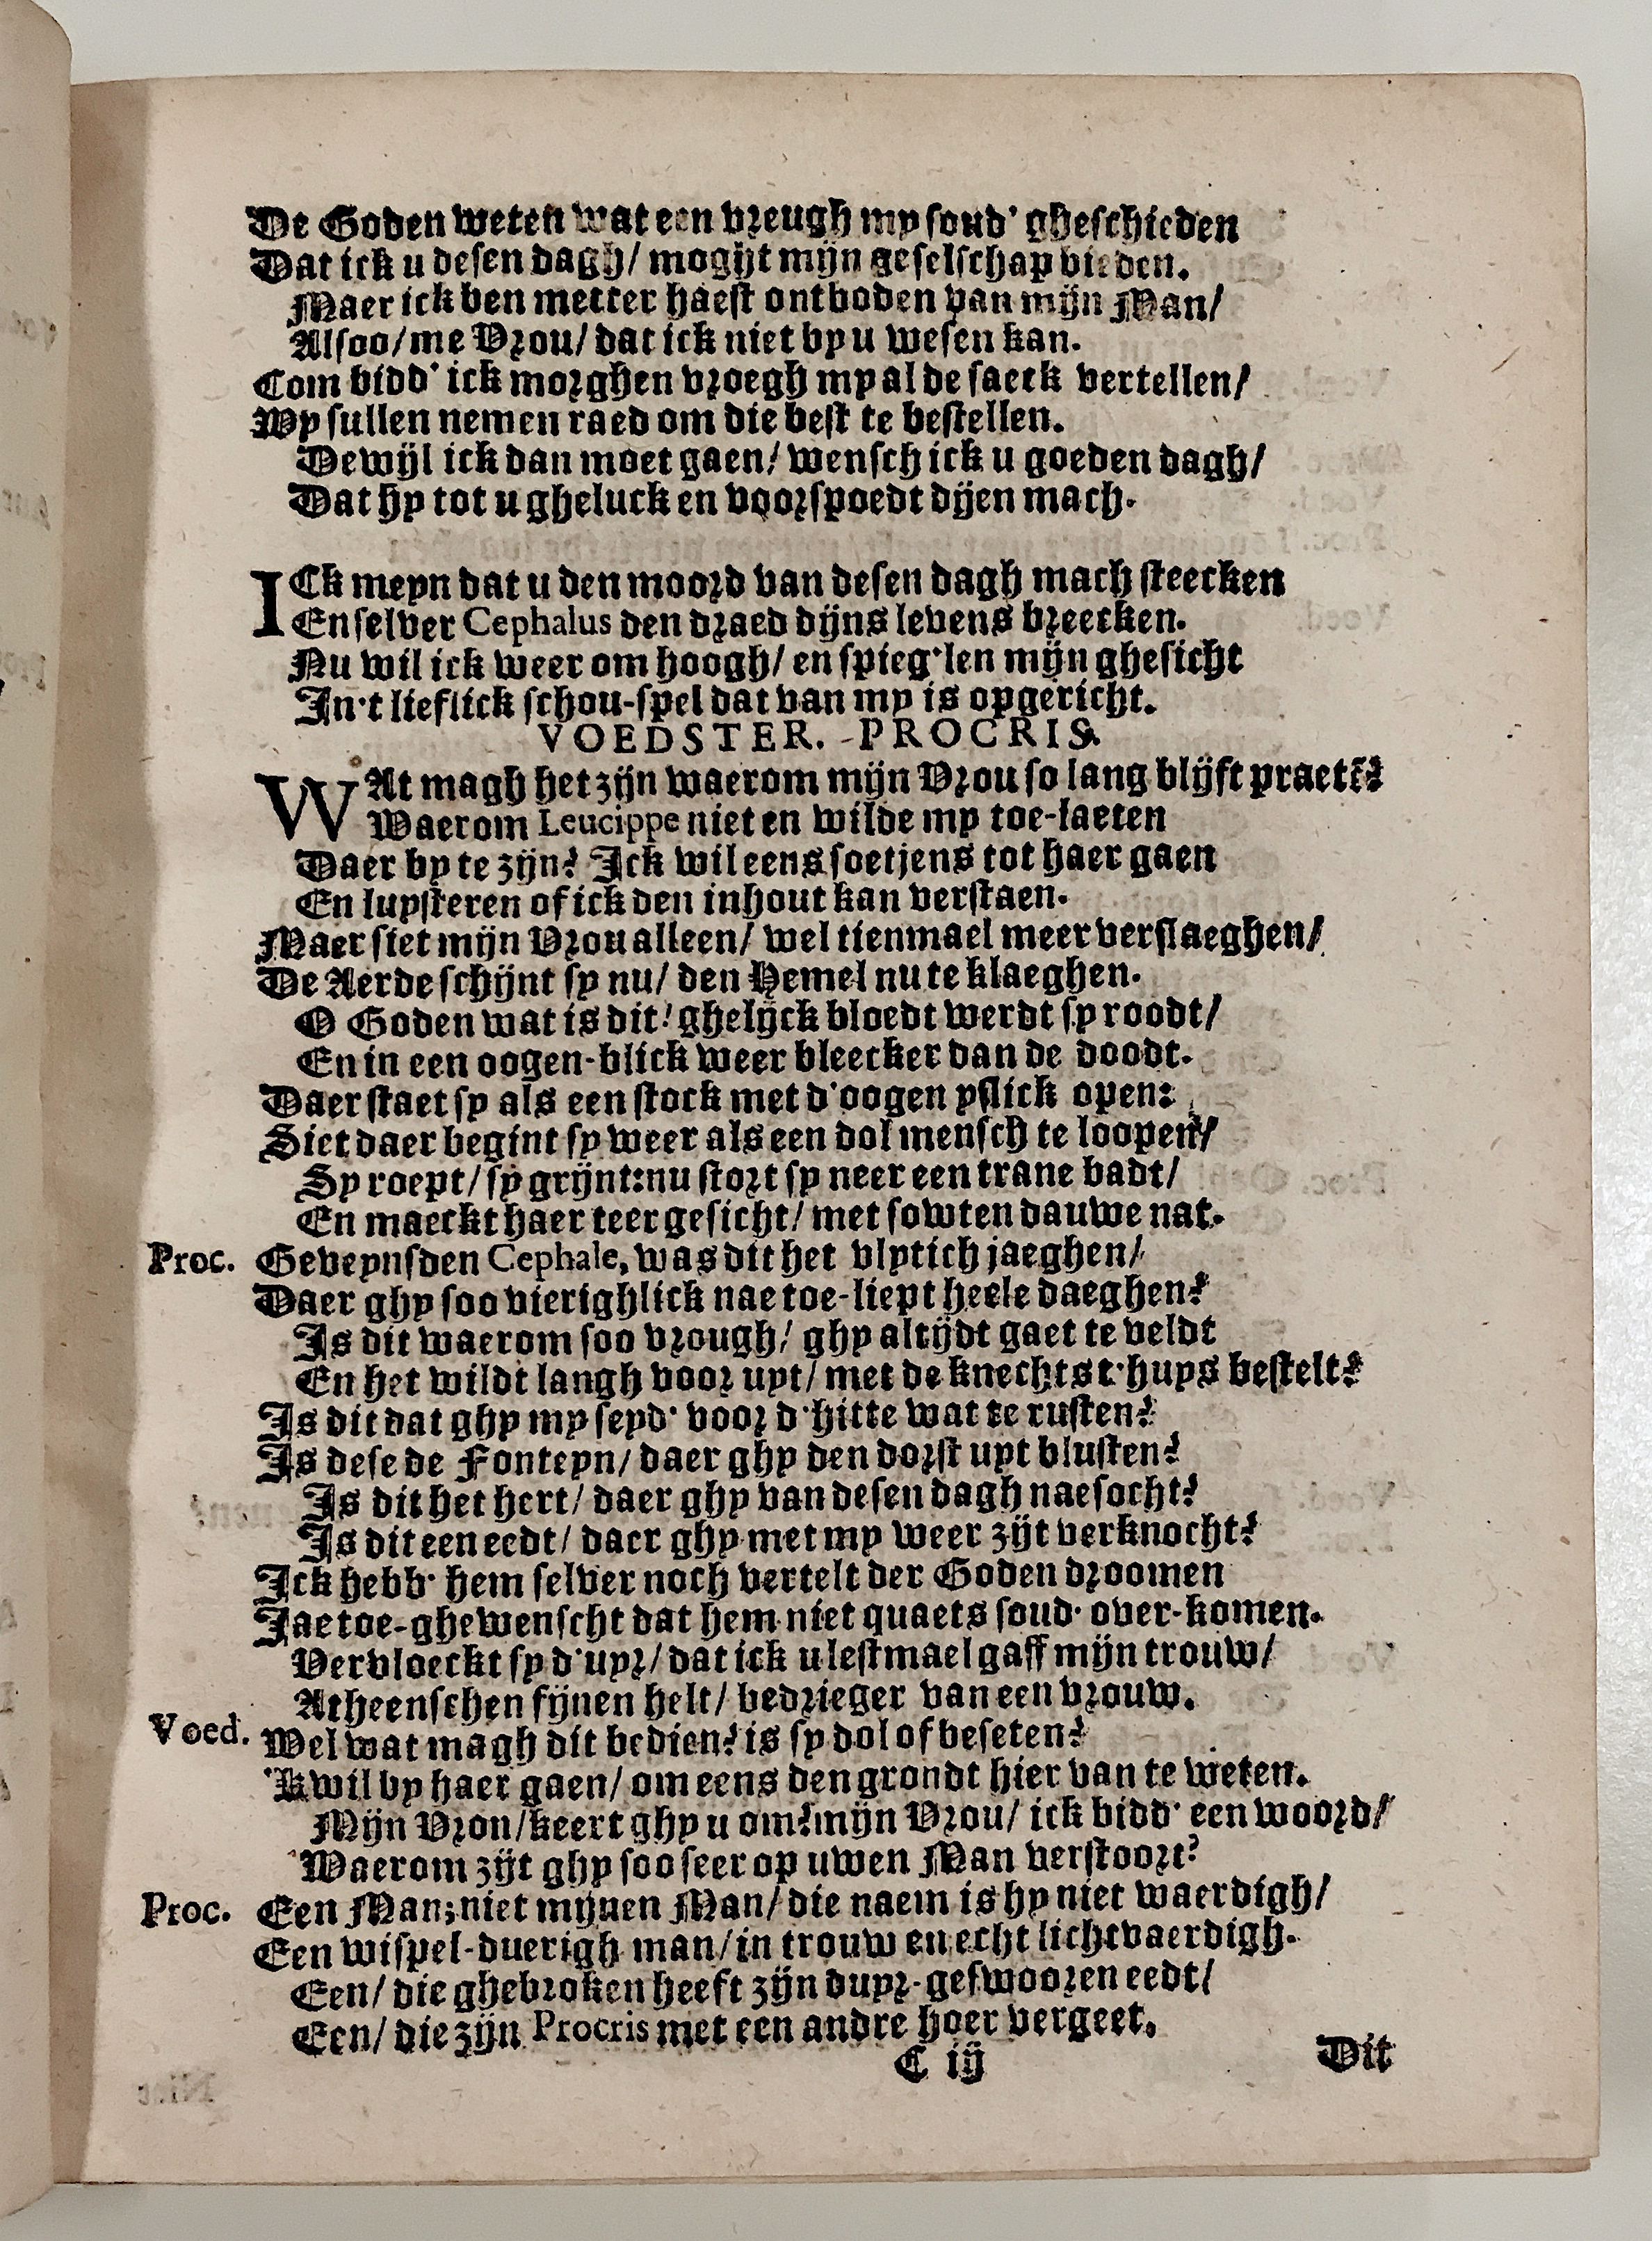 De Goden weten wat een vreugh my soud' gheschieden
Dat ick u desen dagh/ mogijt mijn geselschap bieden.
Maer ick ben metter haest ontboden van mijn Man/
Alsoo/ me Vrou/ dat ick niet by u wesen kan.
Com bidd' ick morghen vroegh my al de saeck vertellen/
Wy sullen nemen raed om die best te bestellen.
Dewijl ick dan moet gaen/ wensch ick u goeden dagh/
Dat hy tot u gheluck en voorspoedt dijen mach.
ICk meyn dat u den moord van desen dagh mach steecken
En selver Cephalus den draed dijns levens breecken.
Nu wil ick weer om hoogh/ en spieg'len mijn ghesicht
In't lieflick schou-spel dat van my is opgericht.
VOEDSTER. PROCRIS.
WAt magh het zijn waerom mijn Vrou so lang blijft praetē?
Waerom Leucippe niet en wilde my toe-laeten
Daer by te zijn? Ick wil eens soetjens tot haer gaen
En luysteren of ick den inhout kan verstaen.
Maer siet mijn Vrou alleen/ wel tienmael meer verslaeghen/
De Aerde schijnt sy nu/ den Hemel nu te klaeghen.
O Goden wat is dit! ghelijck bloedt werdt sy roodt/
En in een oogen-blick weer bleecker dan de doodt.
Daer staet sy als een stock met d'oogen yslick open:
Siet daer begint sy weer als een dol mensch te loopen/
Sy roept/ sy grijnt: nu stort sy neer een trane badt/
En maeckt haer teer gesicht/ met sowten dauwe nat.
Proc. Geveynsden Cephale, was dit het vlytich jaeghen/
Daer ghy soo vierighlick nae toe-liept heele daeghen?
Is dit waerom soo vrough/ ghy altijdt gaet te veldt
En het wildt langh voor uyt/ met de knechts t'huys bestelt?
Is dit dat ghy my seyd' voor d'hitte wat te rusten?
Is dese de Fonteyn/ daer ghy den dorst uyt blusten?
Is dit het hert/ daer ghy van desen dagh nae socht?
Is dit een eedt/ daer ghy met my weer zijt verknocht?
Ick hebb' hem selver noch vertelt der Goden droomen
Jae toe-ghewenscht dat hem niet quaets soud' over-komen.
Vervloeckt sy d'uyr/ dat ick u lestmael gaff mijn trouw/
Atheenschen fijnen helt/ bedrieger van een vrouw.
Voed. Wel wat magh dit bedien? is sy dol of beseten?
'k wil by haer gaen/ om eens den grondt hier van te weten.
Mijn Vron/ keert ghy u om? mijn Vrou/ ick bidd' een woord/
Waerom zijt ghy soo seer op uwen Man verstoort?
Proc. Een Man; niet mijnen Man/ die naem is hy niet waerdigh/
Een wispel-duerigh man/ in trouw en echt lichtvaerdigh.
Een/ die ghebroken heeft zijn duyr-geswooren eedt/
Een/ die zijn Procris met een andre hoer vergeet.
C iij
Dit